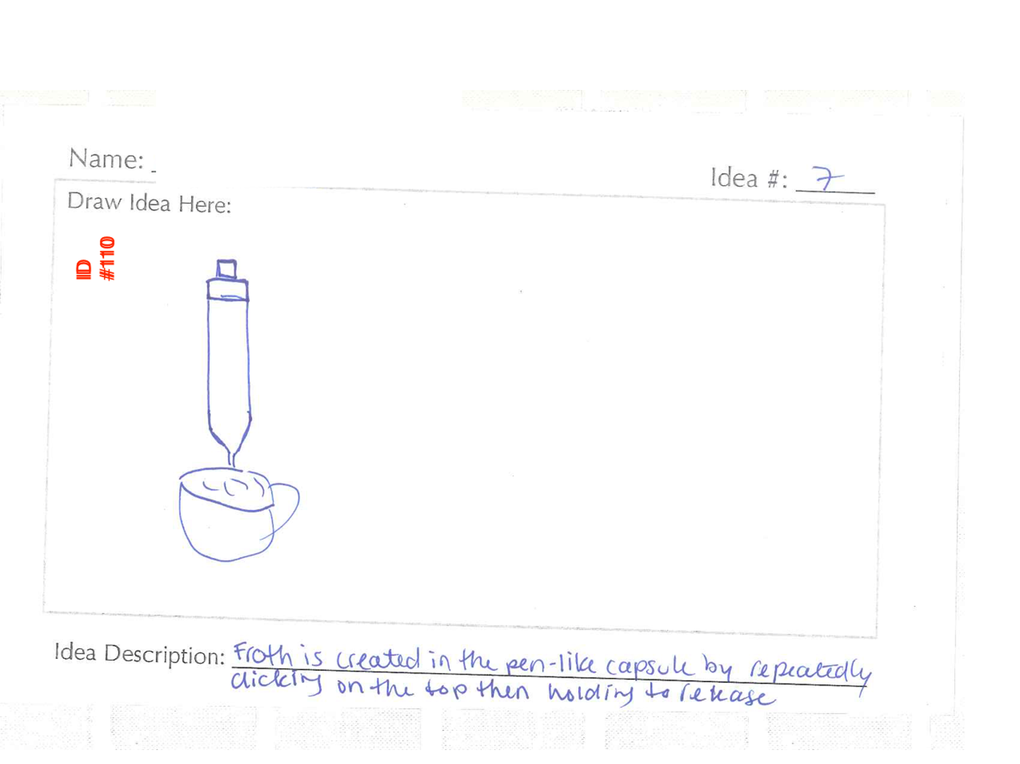 Name:
Idea #: 7
Draw Idea Here:
ID
#110
Idea Description: Froth is created in the pen-like capsule by repeatedly
clicking on the top then holding to release